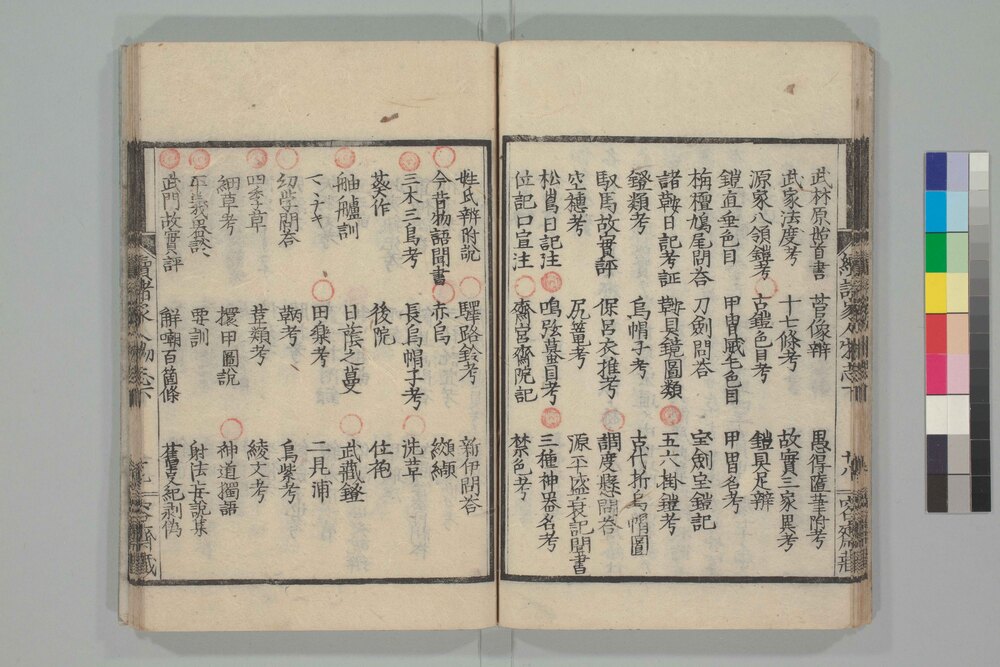 武林原始首書 菅像辨 愚得隨筆附考
武家法度考 十七條考 故實三家異考
源家八領鎧考 古鎧色目考 鎧具足辨
鎧直垂色目 甲冑威毛色目 甲冑名考
栴檀鳩尾問答 刀劍問答 宝劍宝鎧記
諸鞍日記考証 鞍具鏡圖類 五六掛鎧考
鐙類考 烏帽子考 古代折烏帽圖
馭馬故實評 保呂衣推考 調度懸問答
空穗考 尻篭考 源平盛衰記聞書
松蔦日記注 鳴弦蟇目考 三種神器名考
位記口宣注 齋宮齋院記 禁色考
姓氏辨附說 驛路鈴考 新伊問答
今昔物語聞書 赤烏 纐纈
三木三鳥考 長烏帽子考 洗革
葵作 後院 仕袍
舳艫訓 日蔭之蔓 武藏鐙
田樂考 二見浦
幼学問答 鞆考 烏柴考
四季草 葦類考 綾文考
細草考 擐甲圖說 神道獨語
要訓 射法妄說集
武門故實評 解嘲百箇條 舊事紀剥偽
續諸家人物志下